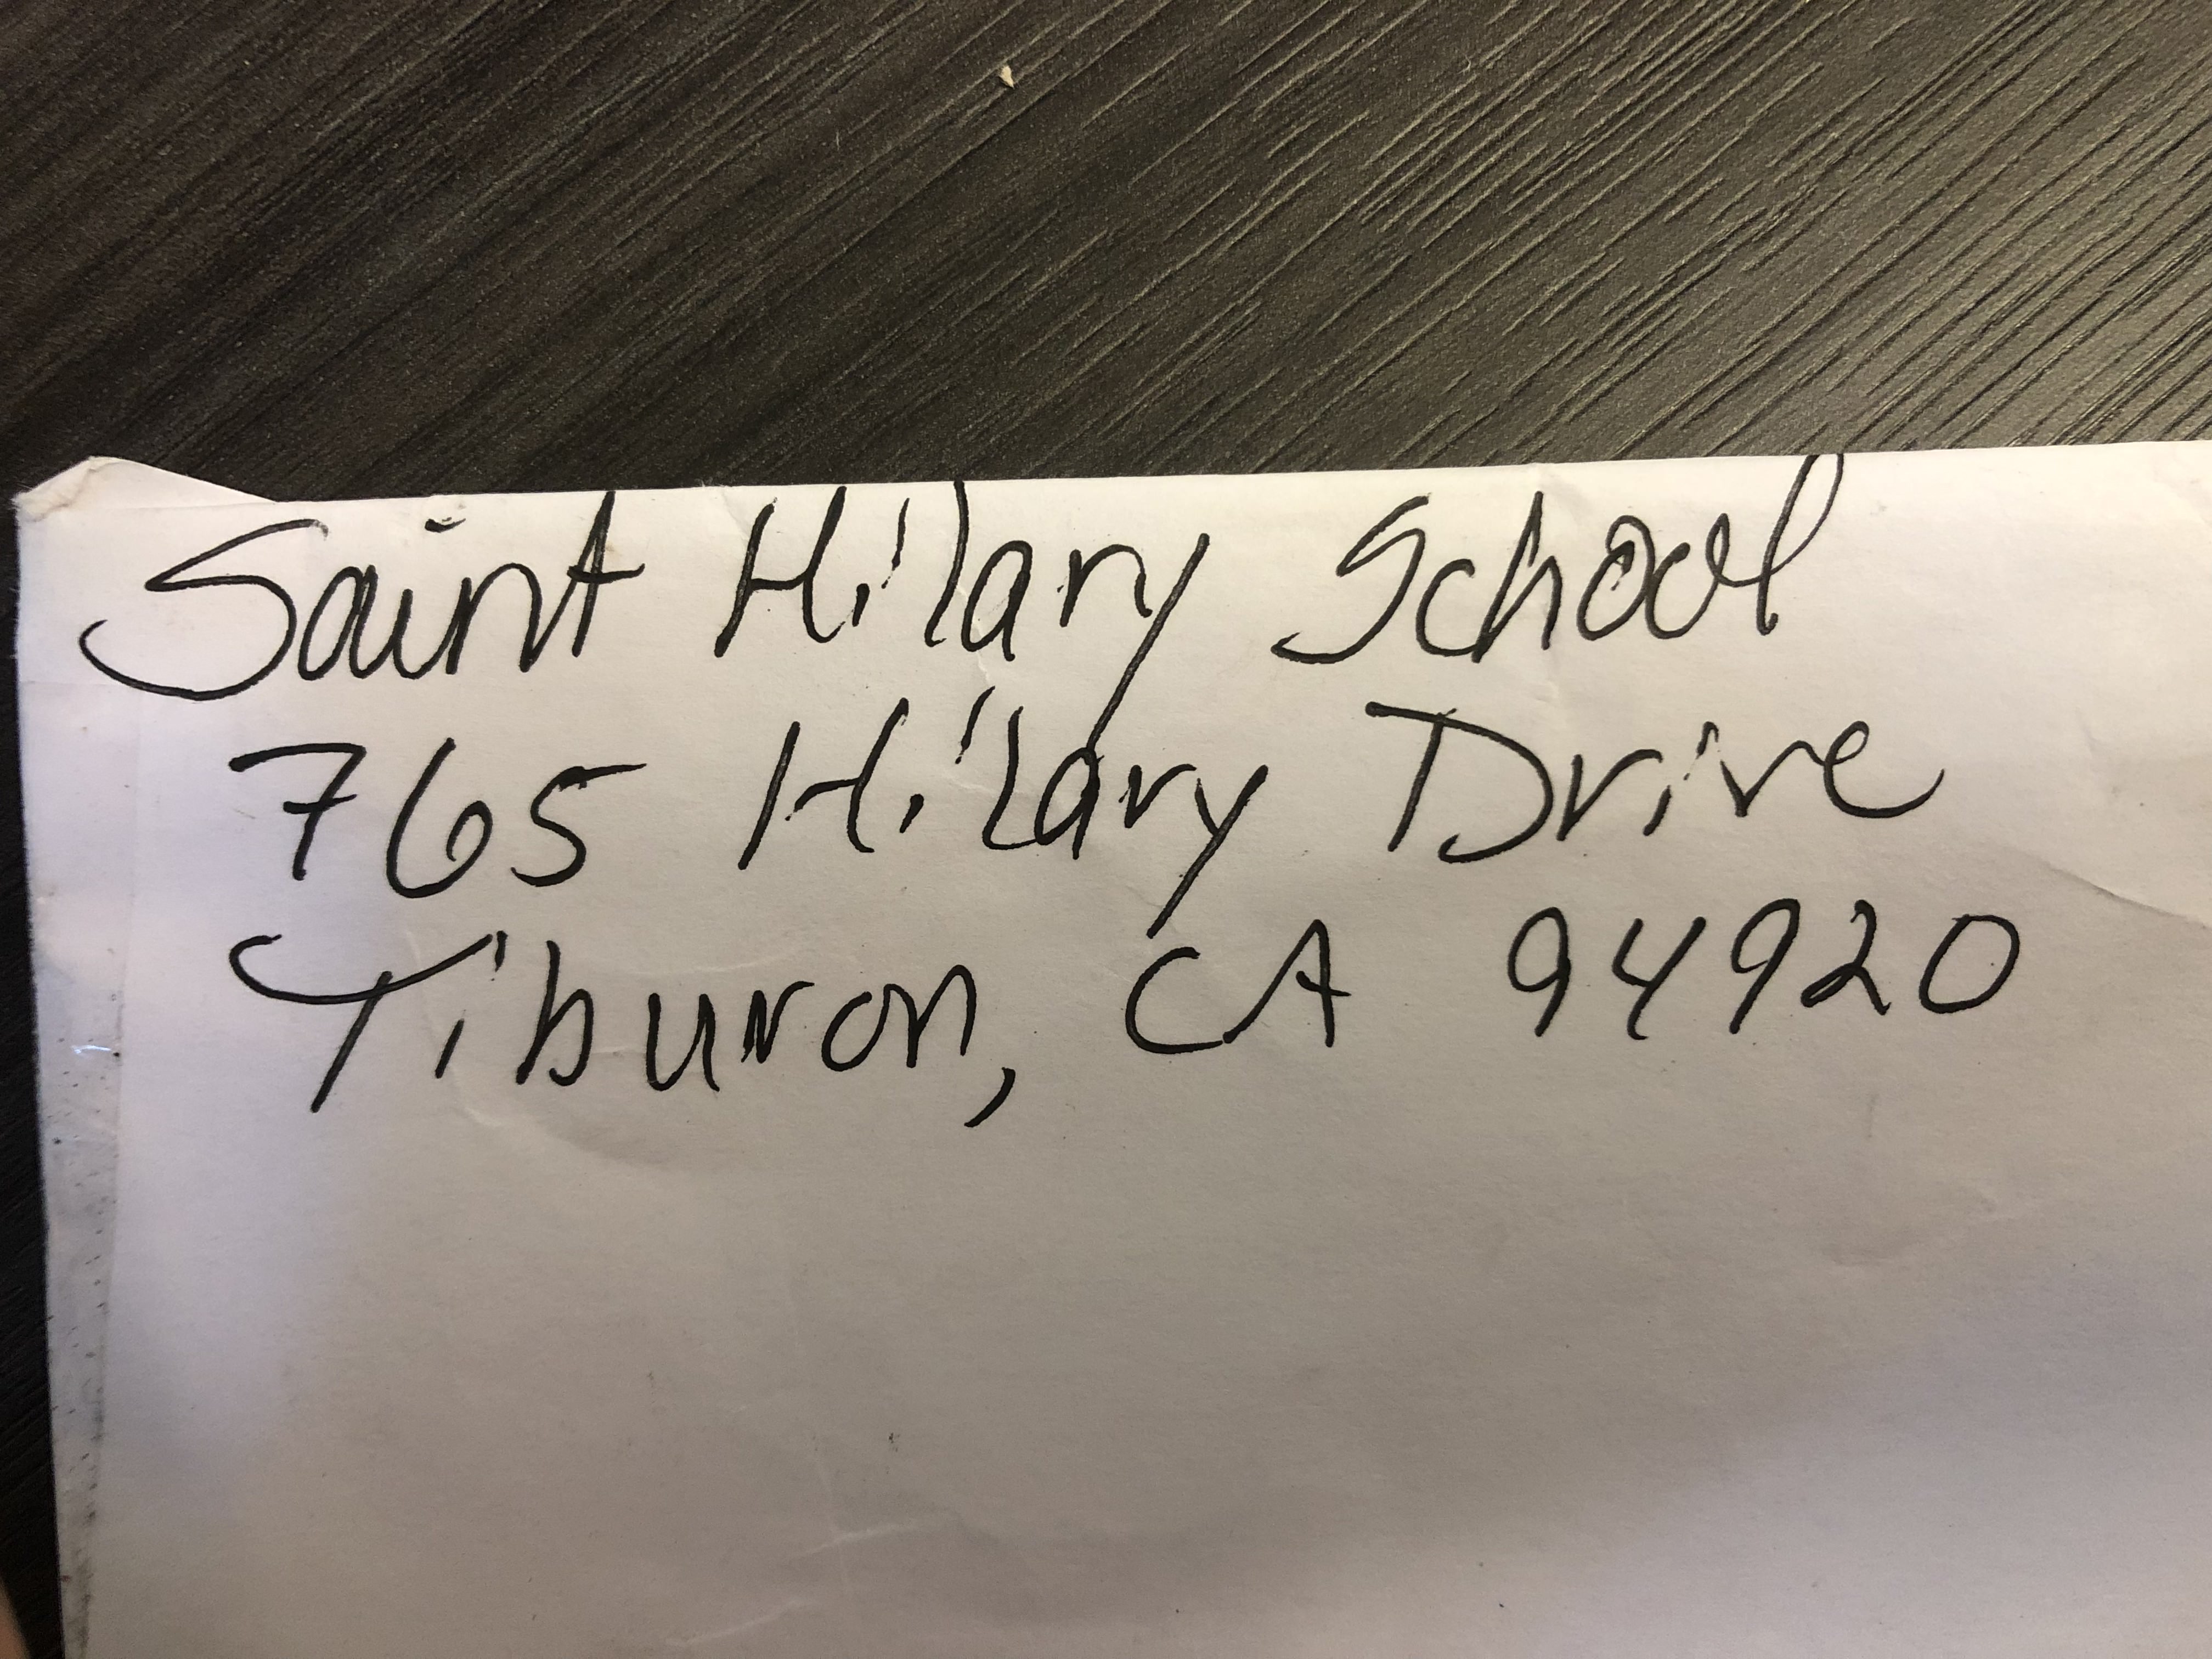 Saint Hilary School
765 Hilary Drive
Tiburon, CA 94920